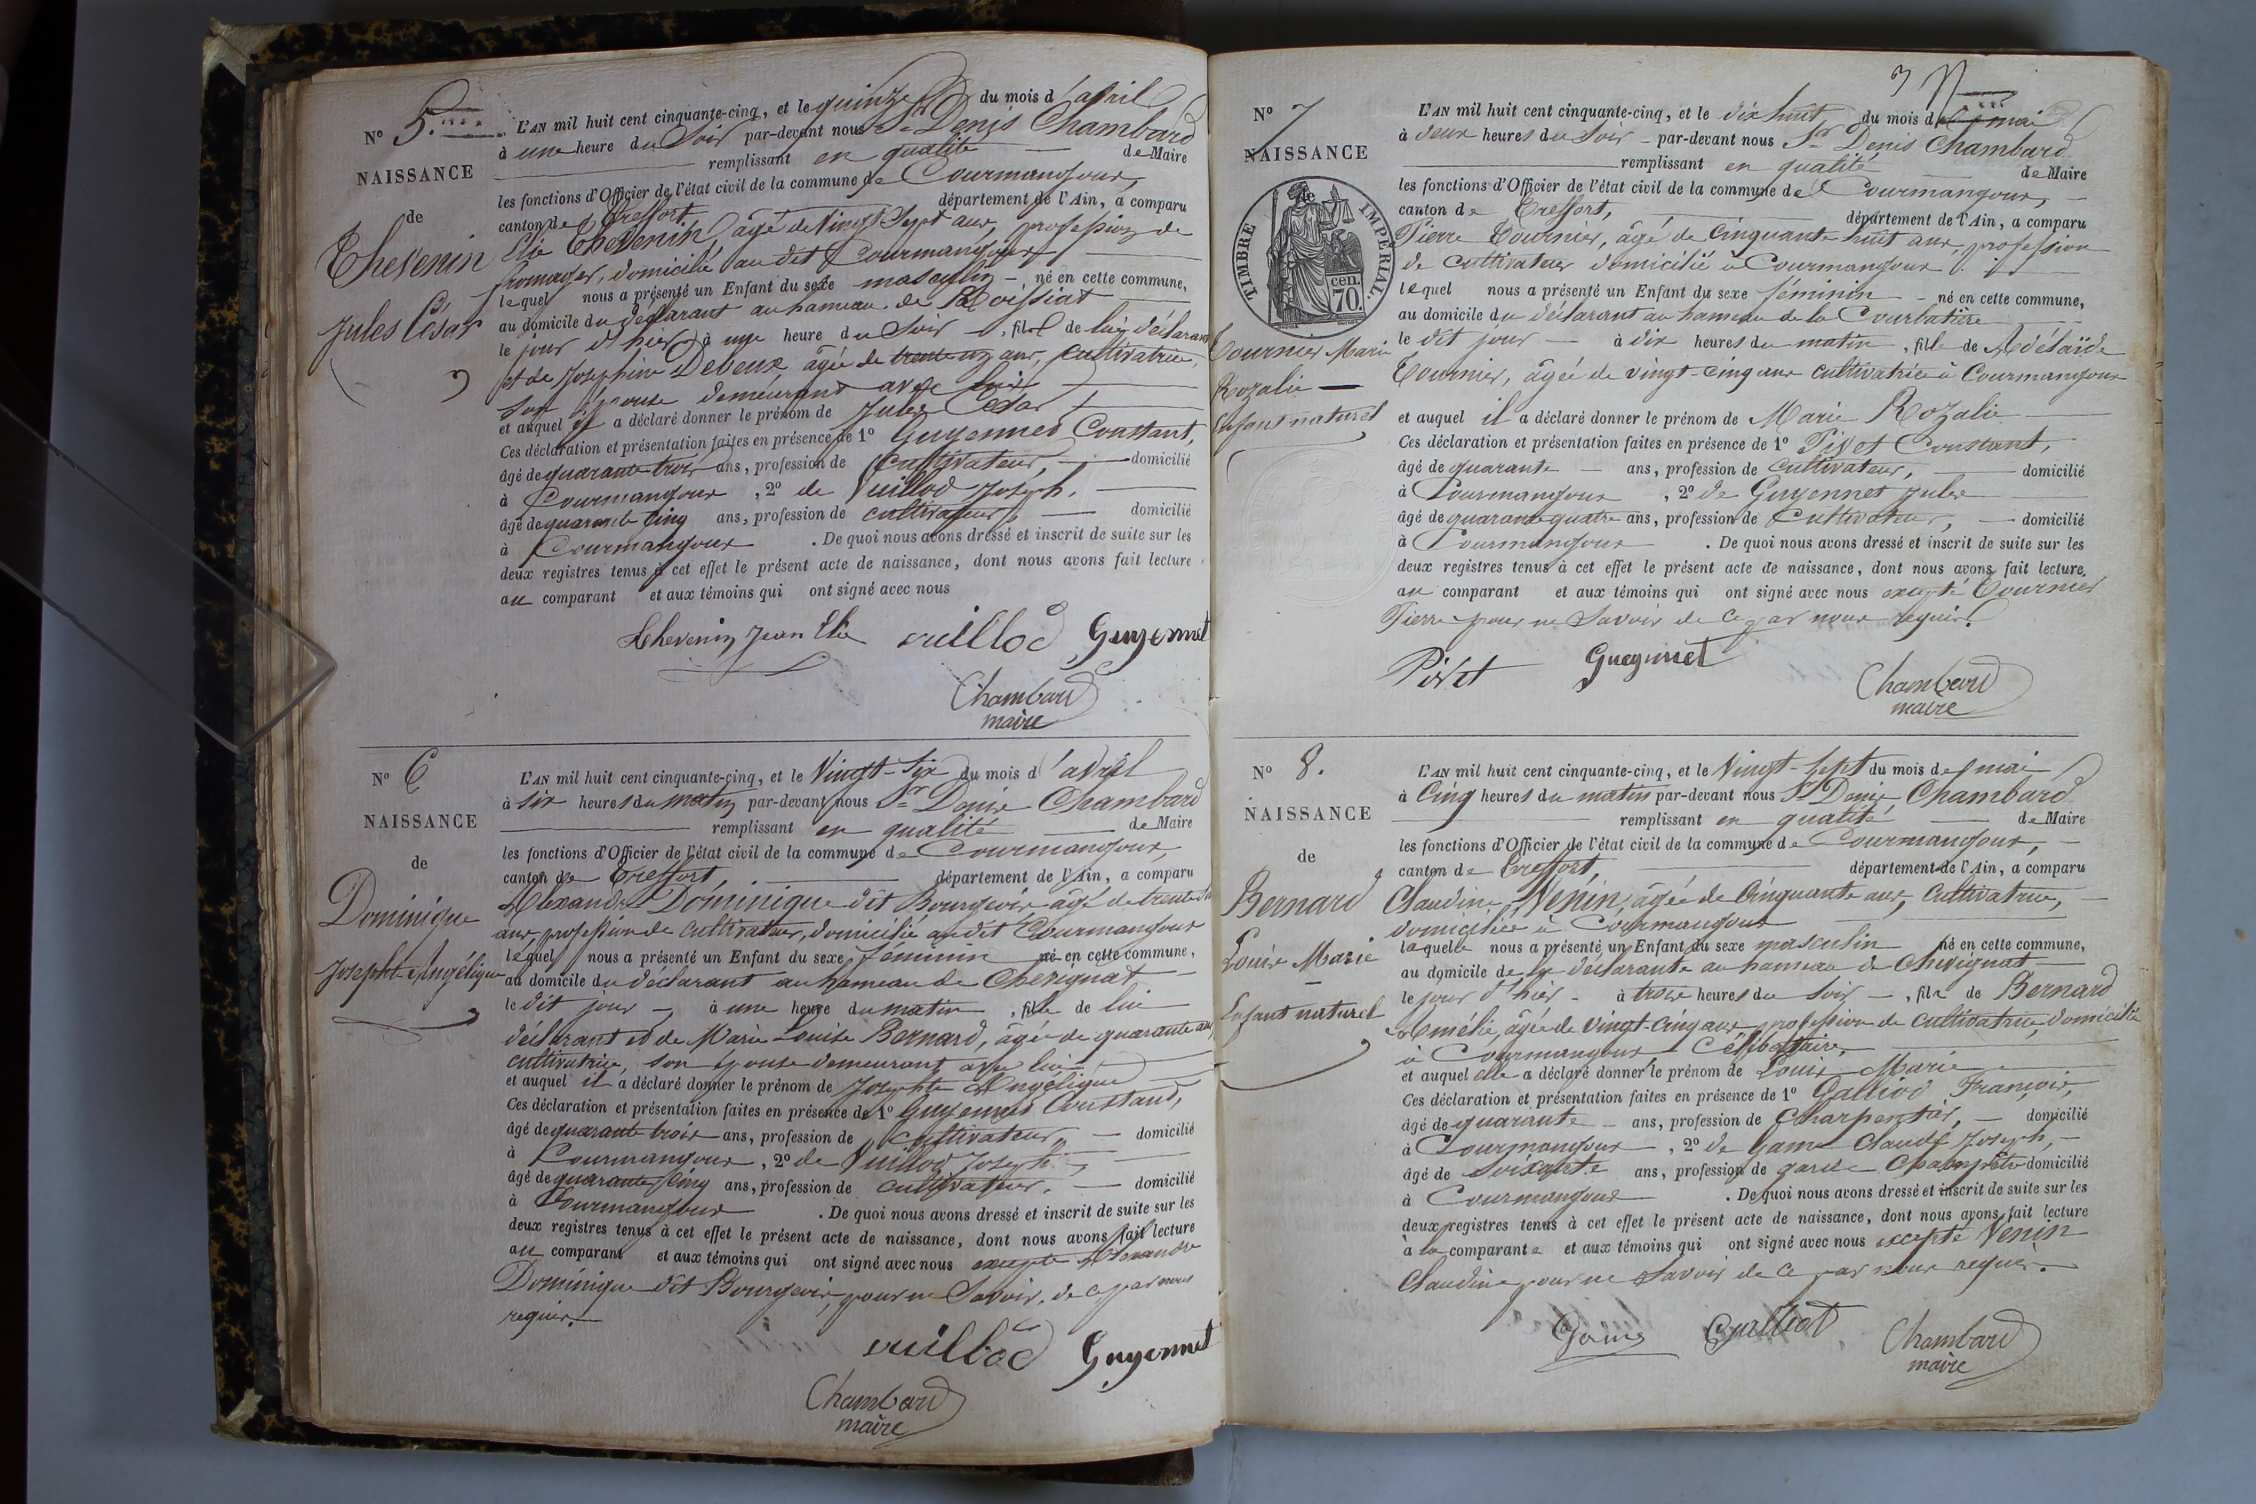 N° 5.
NAISSANCE
de
Thevenin
Jules César
L'AN mil huit cent cinquante-cinq, et le quinze du mois d'avril
à une heure du Soir par-devant nous Sr Denis Chambard
remplissant en qualité de Maire
les fonctions d'Officier de l'état civil de la commune de Courmangoux,
canton de Treffort, département de l'Ain, a comparu
Elie Thevenin, âgé de Vingt-Sept ans, profession de
fromager, domicilié au dit Courmangoux
lequel nous a présenté un Enfant du sexe masculin né en cette commune,
au domicile du déclarant au hameau de Roissiat
le jour d'hier à une heure du Soir, fils de lui déclarant
et de Josephine Debeux, âgée de trente un ans, cultivatrice,
son épouse demeurant avec lui
et auquel il a déclaré donner le prénom de Jules César
Ces déclaration et présentation faites en présence de 1° Guyennet Constant,
âgé de quarante trois ans, profession de Cultivateur, domicilié
à Courmangoux, 2° de Vuillod Joseph,
âgé de quarante cinq ans, profession de cultivateur, domicilié
à Courmangoux. De quoi nous avons dressé et inscrit de suite sur les
deux registres tenus à cet effet le présent acte de naissance, dont nous avons fait lecture
au comparant et aux témoins qui ont signé avec nous
Thevenin Jean Elie vuillod Guyennet
Chambard
maire
N° 6
NAISSANCE
de
Dominique
Josephte Angélique
L'AN mil huit cent cinquante-cinq, et le Vingt-Six du mois d'avril
à six heures du matin par-devant nous Sr Denis Chambard
remplissant en qualité de Maire
les fonctions d'Officier de l'état civil de la commune de Courmangoux,
canton de Treffort, département de l'Ain, a comparu
Alexandre Dominique dit Bourgeois âgé de trente
ans, profession de cultivateur, domicilié au dit Courmangoux
lequel nous a présenté un Enfant du sexe féminin né en cette commune,
au domicile du déclarant au hameau de Chevignat
le dit jour à une heure du matin, fille de lui
déclarant et de Marie Louise Bernard, âgée de quarante ans
cultivatrice, son épouse demeurant avec lui
et auquel il a déclaré donner le prénom de Josephte Angélique
Ces déclaration et présentation faites en présence de 1° Guyennet Constand,
âgé de quarante trois ans, profession de cultivateur, domicilié
à Courmangoux, 2° de Vuillod Joseph,
âgé de quarante cinq ans, profession de cultivateur, domicilié
à Courmangoux. De quoi nous avons dressé et inscrit de suite sur les
deux registres tenus à cet effet le présent acte de naissance, dont nous avons fait lecture
au comparant et aux témoins qui ont signé avec nous excepté Alexandre
Dominique dit Bourgeois, pour ne Savoir, de ce par nous
requis.
vuillod Guyennet
Chambard
maire
3
N° 7
NAISSANCE
de
TIMBRE IMPÉRIAL.
70. cen.
Tournier Marie
Rozalie
Enfant naturel
L'AN mil huit cent cinquante-cinq, et le dix huit du mois de mai
à deux heures du Soir par-devant nous Sr Denis Chambard
remplissant en qualité de Maire
les fonctions d'Officier de l'état civil de la commune de Courmangoux,
canton de Treffort, département de l'Ain, a comparu
Pierre Tournier, âgé de Cinquante huit ans, profession
de cultivateur domicilié à Courmangoux
lequel nous a présenté un Enfant du sexe féminin né en cette commune,
au domicile du déclarant au hameau de la Courbatière
le dit jour à dix heures du matin, fille de Adélaïde
Tournier, âgée de vingt-cinq ans cultivatrice à Courmangoux
et auquel il a déclaré donner le prénom de Marie Rozalie
Ces déclaration et présentation faites en présence de 1° Pivet Constant,
âgé de quarante ans, profession de cultivateur, domicilié
à Courmangoux, 2° de Guyennet Jules
âgé de quarante quatre ans, profession de Cultivateur, domicilié
à Courmangoux. De quoi nous avons dressé et inscrit de suite sur les
deux registres tenus à cet effet le présent acte de naissance, dont nous avons fait lecture
au comparant et aux témoins qui ont signé avec nous excepté Tournier
Pierre pour ne Savoir de ce par nous requis.
Pivet Gueyunet
Chambard
maire
N° 8.
NAISSANCE
de
Bernard
Louis Marie
Enfant naturel
L'AN mil huit cent cinquante-cinq, et le Vingt-Sept du mois de mai
à Cinq heures du matin par-devant nous Sr Denis Chambard
remplissant en qualité de Maire
les fonctions d'Officier de l'état civil de la commune de Courmangoux,
canton de Treffort, département de l'Ain, a comparu
Claudine Venin, âgée de Cinquante ans, Cultivatrice,
domiciliée à Courmangoux
laquelle nous a présenté un Enfant du sexe masculin né en cette commune,
au domicile de la déclarante au hameau de Chevignat
le jour d'hier à trois heures du Soir, fils de Bernard
Amélie, âgée de vingt-cinq ans, profession de cultivatrice, domiciliée
à Courmangoux Célibataire,
et auquel elle a déclaré donner le prénom de Louis Marie
Ces déclaration et présentation faites en présence de 1° Galliod François,
âgé de quarante ans, profession de Charpentier, domicilié
à Courmangoux, 2° de Game Claude Joseph,
âgé de Soixante ans, profession de garde Champêtre domicilié
à Courmangoux. De quoi nous avons dressé et inscrit de suite sur les
deux registres tenus à cet effet le présent acte de naissance, dont nous avons fait lecture
à la comparante et aux témoins qui ont signé avec nous excepté Venin
Claudine pour ne Savoir de ce par nous requis.
Game Galliod
Chambard
maire